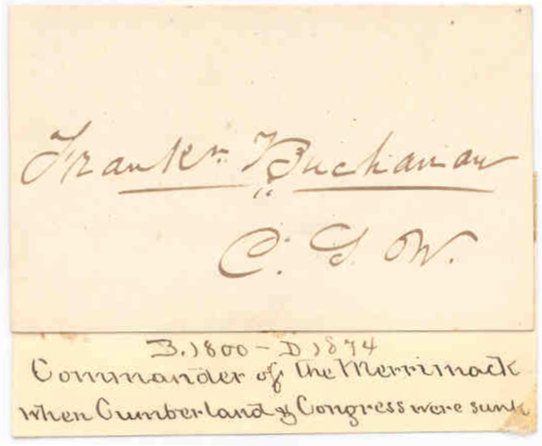 Frankn. Buchanan
C. S. N.
B. 1800 - D 1874
Commander of the Merrimack
when Cumberland & Congress were sunk